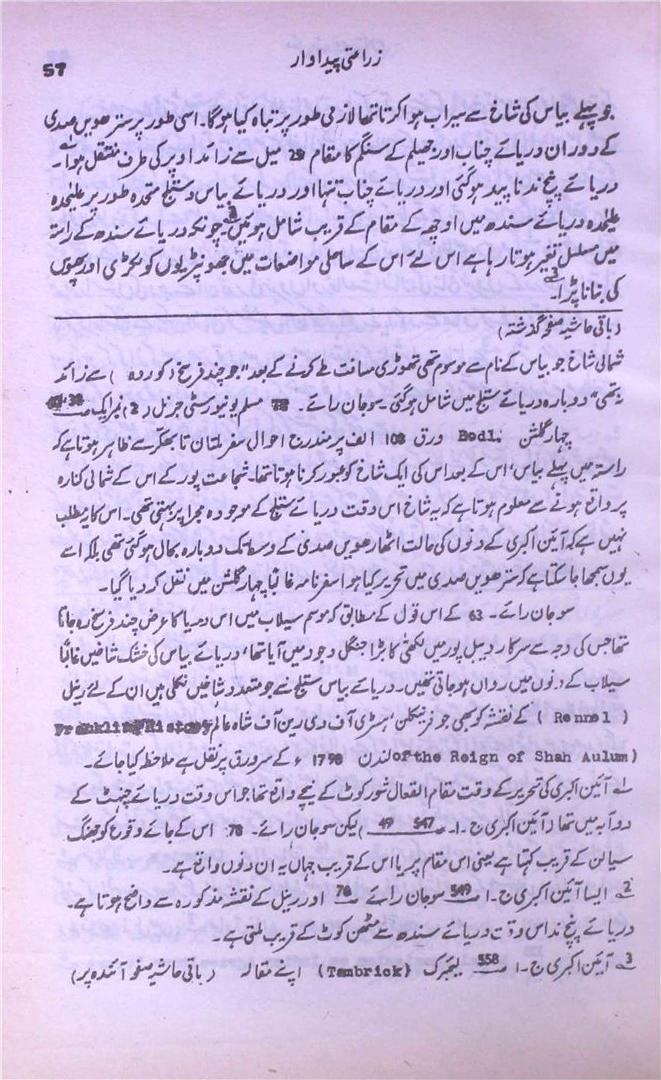 زراعتی پیداوار
57
جو پہلے بیاس کی شاخ سے سیراب ہوا کرتا تھا لازمی طور پر تباہ کیا ہوگا۔ اسی طور پر سترھویں صدی
کے دوران دریائے چناب اور جھیلم کے سنگم کا مقام 29 میل سے زائد اوپر کی طرف منتقل ہوا۔
دریائے پنج ند ناپید ہوگئی اور دریائے چناب تنہا اور دریائے بیاس و ستلج متحدہ طور پر علیٰحدہ
علیٰحدہ دریائے سندھ میں اوچھ کے مقام کے قریب شامل ہوئیں۔2 چونکہ دریائے سندھ کے راستہ
میں مسلسل تغیر ہوتا رہا ہے اس لئے اس کے ساحلی مواضعات میں جھونپڑیوں کو لکڑی اور پھوس
کی بنانا پڑا۔3
(باقی حاشیہ صفحو گذشتہ)
شمالی شاخ جو بیاس کے نام سے موسوم تھی تھوڑی مسافت طے کرنے کے بعد "جو چند فرسخ (کوردہ) سے زائد
نہ تھی" دوبارہ دریائے ستلج میں شامل ہوگئی۔ سوجان رائے۔ 78 مسلم یونیورسٹی جرنل (2) نمبر ایک صـ
چہار گلشن Bodl. ورق 108 الف پر مندرج احوال سفر ملتان تا بھکر سے ظاہر ہوتا ہے کہ
راستہ میں پہلے بیاس، اس کے بعد اس کی ایک شاخ کو عبور کرنا ہوتا تھا۔ شجاعت پور کے اس کے شمالی کنارہ
پر واقع ہونے سے معلوم ہوتا ہے کہ یہ شاخ اس وقت دریائے ستلج کے موجودہ مجرا پر بہتی تھی۔ اس کا یہ مطلب
نہیں ہے کہ آئین اکبری کے دنوں کی حالت اٹھارھویں صدی کے وسط تک دوبارہ بحال ہوگئی تھی بلکہ اسے
یوں سمجھا جا سکتا ہے کہ سترھویں صدی میں تحریر کیا ہوا سفر نامہ غالباً چہار گلشن میں نقل کر دیا گیا۔
سوجان رائے۔ 63 کے اس قول کے مطابق کہ موسم سیلاب میں اس دریا کا عرض چند فرسخ رہ جاتا
تھا جس کی وجہ سے سرکار دیبل پور میں لکھی کا بڑا جنگل وجود میں آیا تھا، دریائے بیاس کی خشک شاخیں غالباً
سیلاب کے دنوں میں رواں ہو جاتی تھیں۔ دریائے بیاس ستلج نے جو متعدد شاخیں نکلی ہیں ان کے لئے رینل
(Rennel) کے نقشہ کو بھی جو فرینکلن، ہسٹری آف دی رین آف شاہ عالم Franklin History
of the Reign of Shah Aulum) لندن 1798ء کے سرورق پر نقل ہے ملاحظہ کیا جائے۔
1؎ آئین اکبری کی تحریر کے وقت مقام اتصال شورکوٹ کے نیچے واقع تھا جو اس وقت دریائے چنہٹ کے
دوآبہ میں تھا (آئین اکبری ج۔ا۔ صـ 547 49) لیکن سوجان رائے۔ 78 اس کے جائے وقوع کو جھنگ
سیالن کے قریب کہتا ہے یعنی اس مقام پر یا اس کے قریب جہاں یہ ان دنوں واقع ہے۔
2؎ ایسا آئین اکبری ج۔ا صـ 549 سوجان رائے صـ 76 اور رینل کے نقشہ مذکورہ سے واضح ہوتا ہے۔
دریائے پنج ند اس وقت دریائے سندھ سے مٹھن کوٹ کے قریب ملتی ہے۔
3؎ آئین اکبری ج۔ا صـ 558 لیمبرک (Tambrick) اپنے مقالہ (باقی حاشیہ صفحو آئندہ پر)